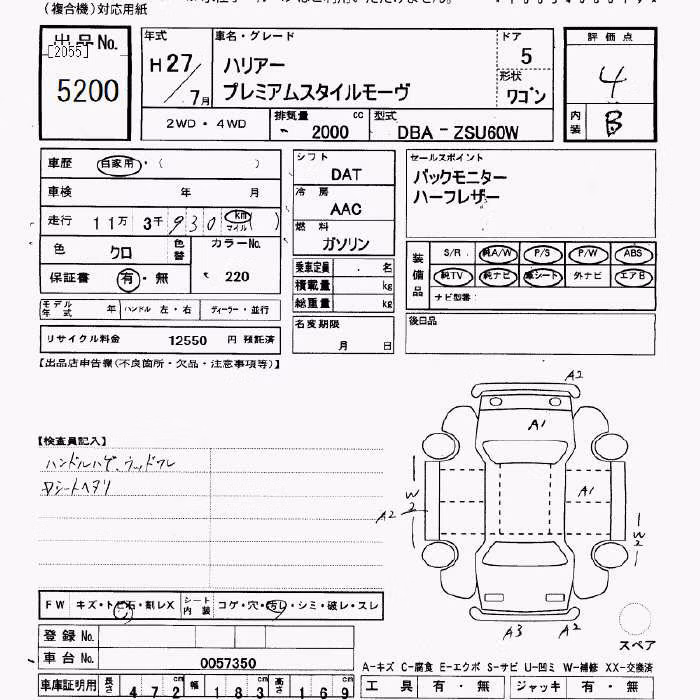 (複合機)対応用紙
出品No. 年式 車名・グレード ドア 評価点
[2055] H27 ハリアー 5 4
5200 7月 プレミアムスタイルモーヴ 形状 ワゴン 内装 B
2WD・4WD 排気量 2000 cc 型式 DBA-ZSU60W
車歴 自家用・( ) シフト DAT セールスポイント
車検 年 月 冷房 AAC バックモニター
走行 11万 3千 930 km マイル ( ) 燃料 ガソリン ハーフレザー
色 クロ 色替 カラーNo. 220
保証書 有・無 乗車定員 . 名
装備品 S/R 純A/W P/S P/W ABS
純TV 純ナビ 革シート 外ナビ エアB
ナビ型番:
積載量 kg
総重量 kg
モデル年式 年 ハンドル 左・右 ディーラー・並行
名変期限 月 日 後日品
リサイクル料金 12550 円 預託済
【出品店申告欄(不良箇所・欠品・注意事項等)】
【検査員記入】
ハンドルハゲ、ウッドワレ
Dシートヘタリ
A2
A1
A1
A2 W2
W2
A3 A2
スペア
FW キズ・トビ石・割レX シート内装 コゲ・穴・汚レ・シミ・破レ・スレ
登録No.
車台No. 0057350
A-キズ C-腐食 E-エクボ S-サビ U-凹ミ W-補修 XX-交換済
車庫証明用 長さ 472 cm 幅 183 cm 高さ 169 cm
工具 有・無 ジャッキ 有・無